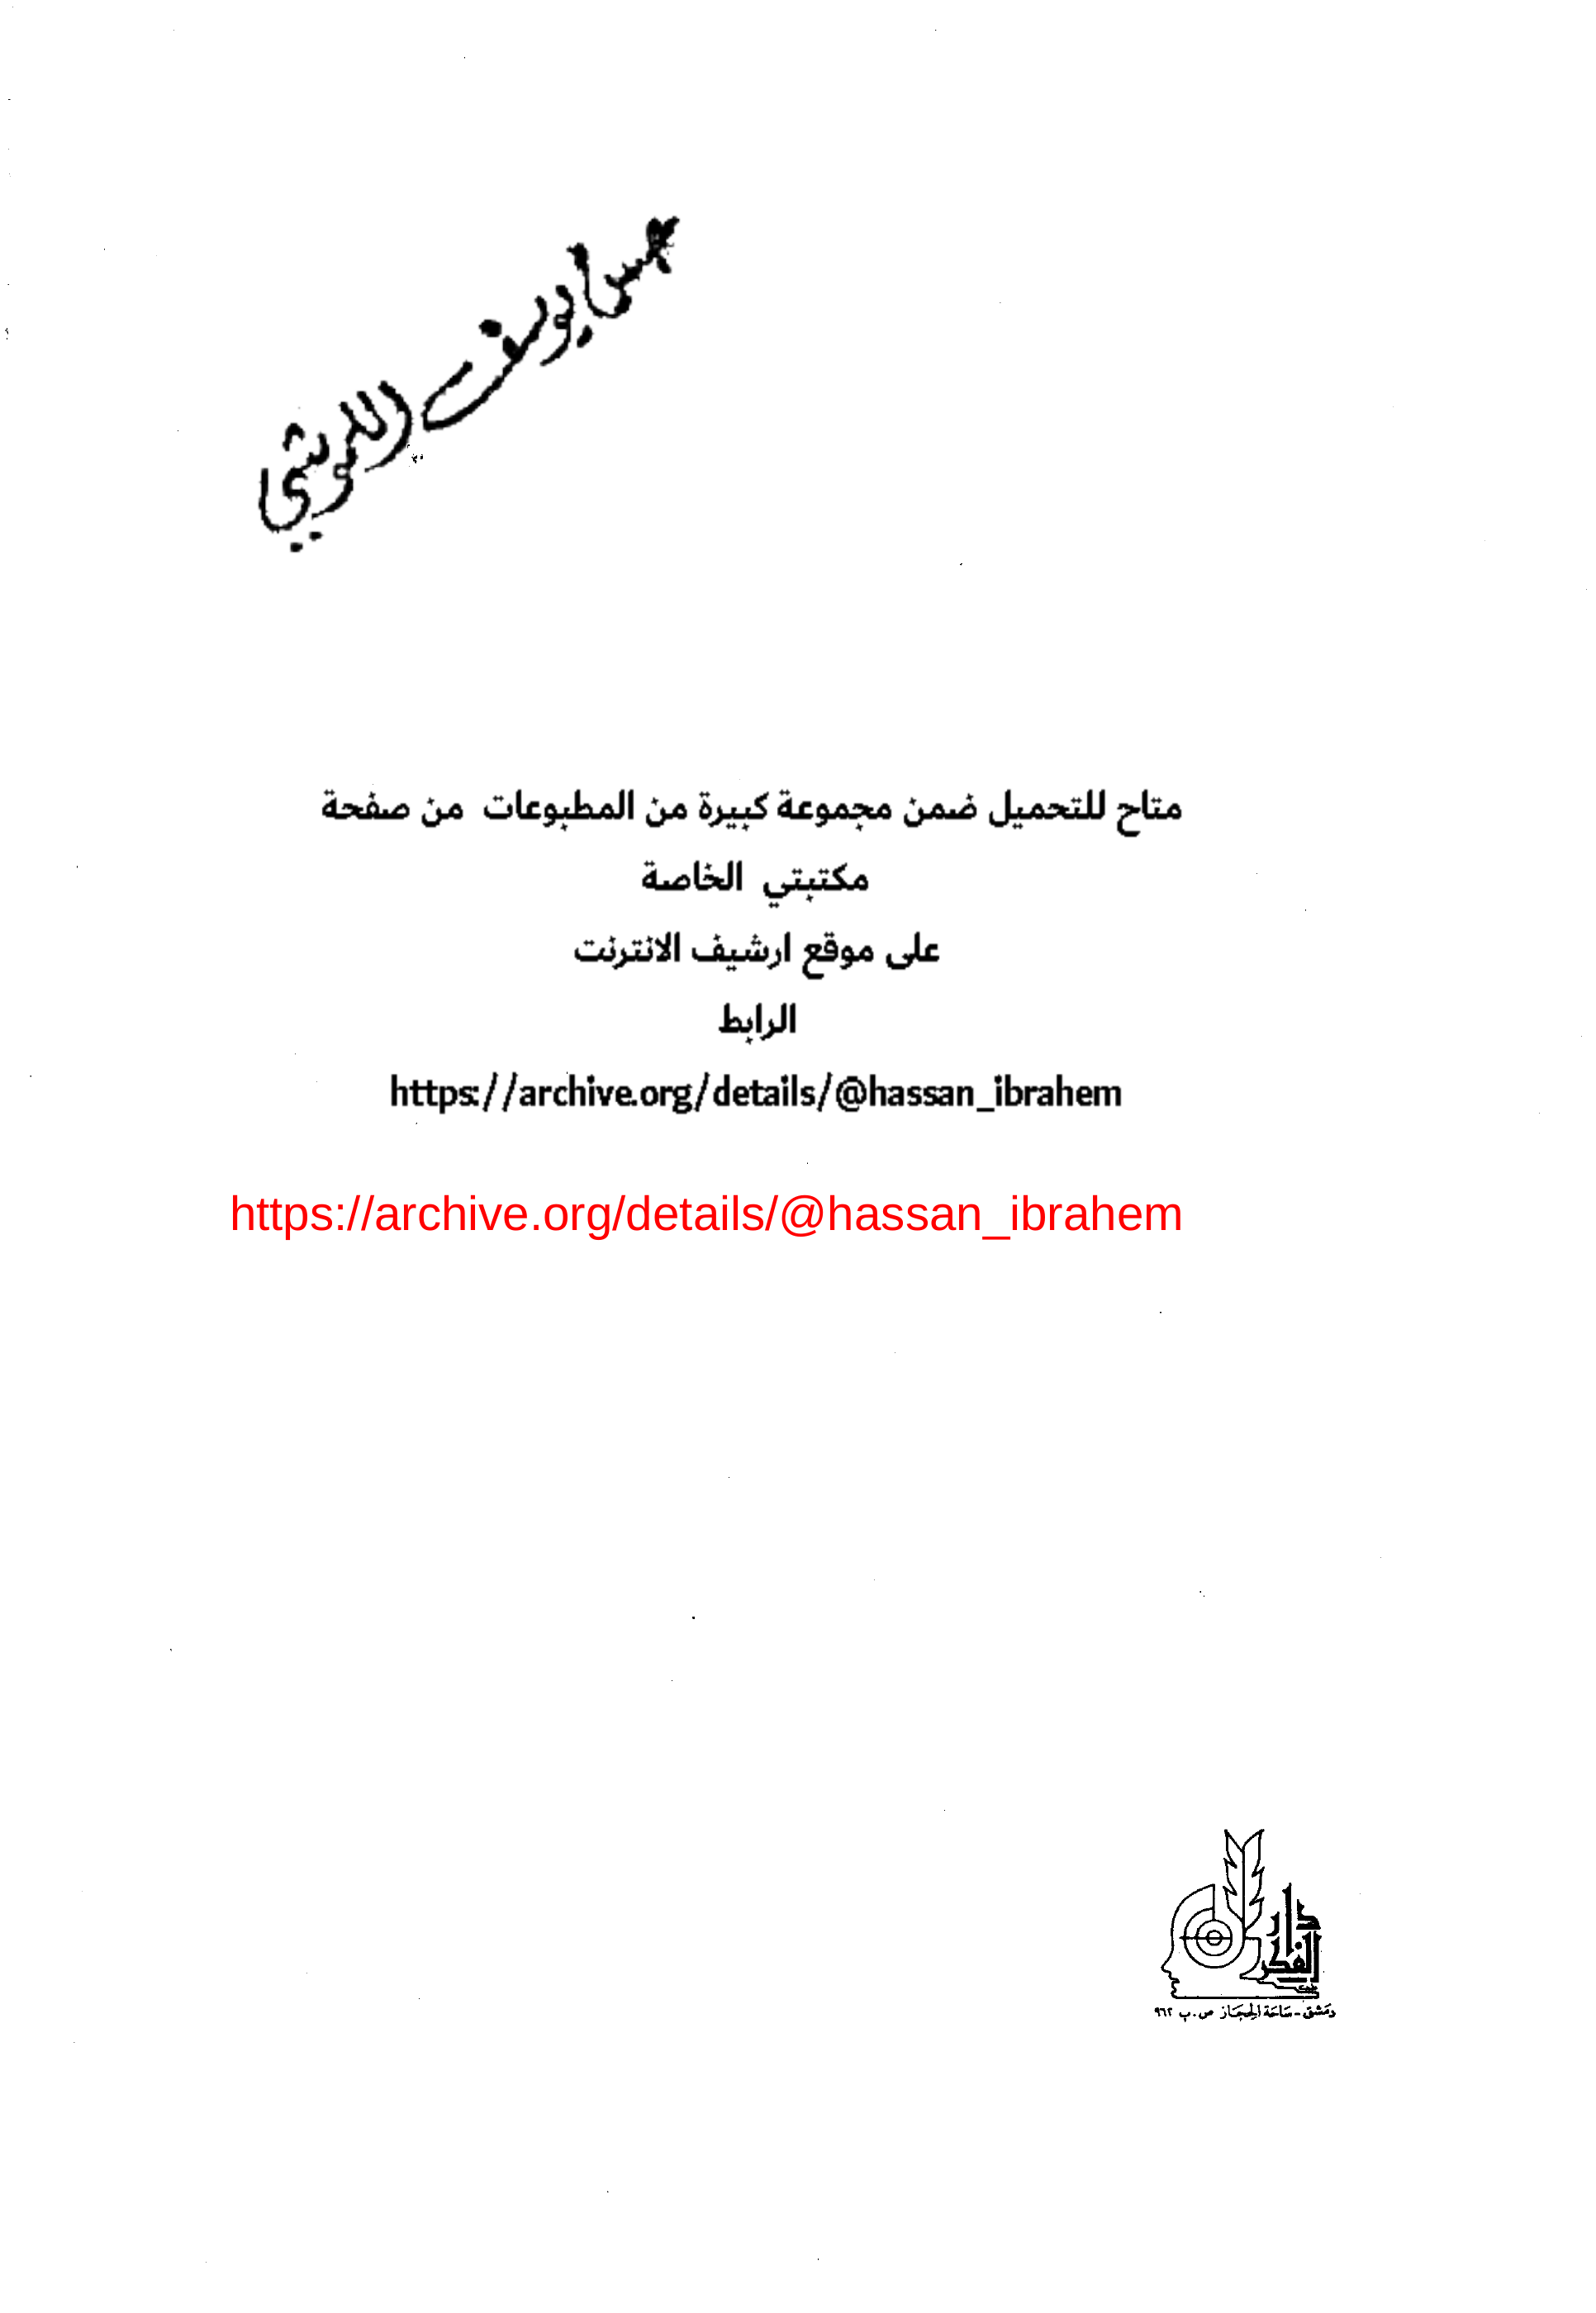 متاح للتحميل ضمن مجموعة كبيرة من المطبوعات من صفحة
مكتبتي الخاصة
على موقع ارشيف الانترنت
الرابط
https://archive.org/details/@hassan_ibrahem
https://archive.org/details/@hassan_ibrahem
دار
الفكر
دمَشق - سَاحَة الحِجَاز ص.ب ٩٦٢